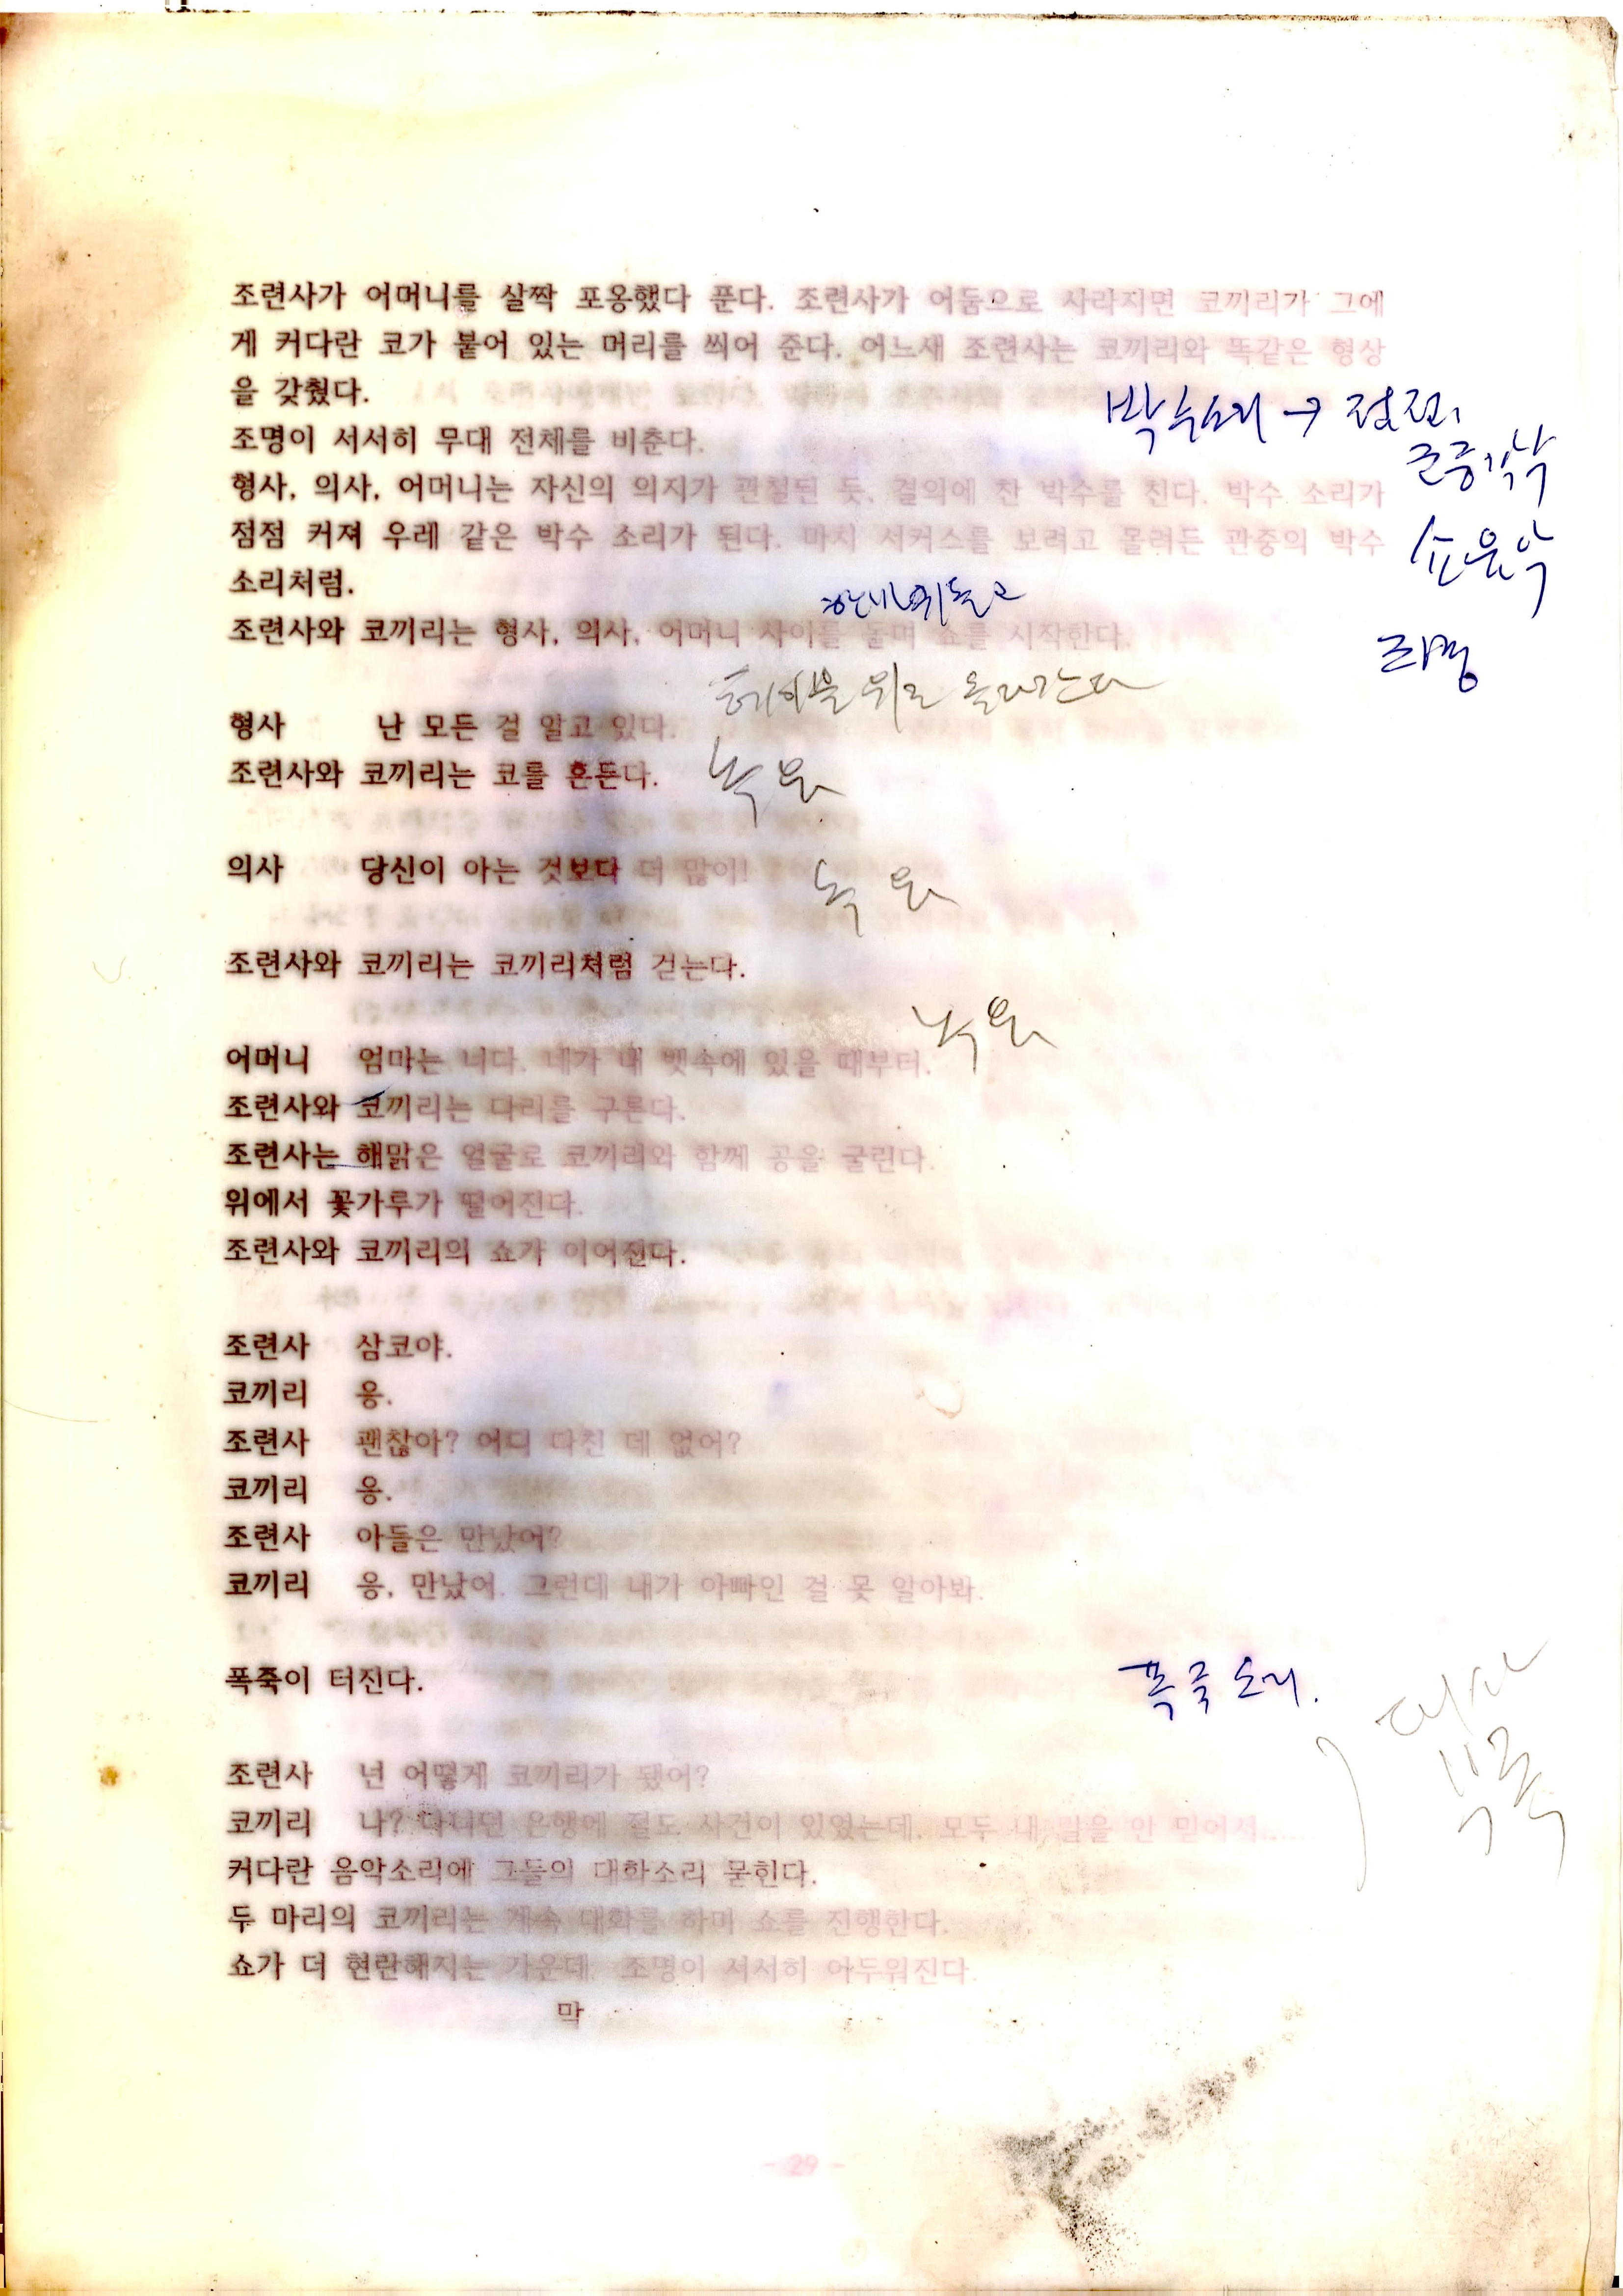 조련사가 어머니를 살짝 포옹했다 푼다. 조련사가 어둠으로 사라지면 코끼리가 그에
게 커다란 코가 붙어 있는 머리를 씌어 준다. 어느새 조련사는 코끼리와 똑같은 형상
을 갖췄다.
박수소리 →
조명이 서서히 무대 전체를 비춘다.
형사, 의사, 어머니는 자신의 의지가 관철된 듯, 결의에 찬 박수를 친다. 박수 소리가
점점 커져 우레 같은 박수 소리가 된다. 마치 서커스를 보려고 몰려든 관중의 박수
쇼음악
소리처럼.
조련사와 코끼리는 형사, 의사, 어머니 사이를 돌며 쇼를 시작한다.
조명
테이블 위로 올라간다
형사 난 모든 걸 알고 있다.
조련사와 코끼리는 코를 흔든다.
녹음
의사 당신이 아는 것보다 더 많이!
녹음
조련사와 코끼리는 코끼리처럼 걷는다.
녹음
어머니 엄마는 너다. 네가 내 뱃속에 있을 때부터.
조련사와 코끼리는 다리를 구른다.
조련사는 해맑은 얼굴로 코끼리와 함께 공을 굴린다.
위에서 꽃가루가 떨어진다.
조련사와 코끼리의 쇼가 이어진다.
조련사 삼코야.
코끼리 응.
조련사 괜찮아? 어디 다친 데 없어?
코끼리 응.
조련사 아들은 만났어?
코끼리 응, 만났어. 그런데 내가 아빠인 걸 못 알아봐.
폭죽이 터진다.
폭죽 소리.
조련사 넌 어떻게 코끼리가 됐어?
코끼리 나? 다니던 은행에 절도 사건이 있었는데, 모두 내 말을 안 믿어서......
커다란 음악소리에 그들의 대화소리 묻힌다.
두 마리의 코끼리는 계속 대화를 하며 쇼를 진행한다.
쇼가 더 현란해지는 가운데, 조명이 서서히 어두워진다.
막
- 29 -